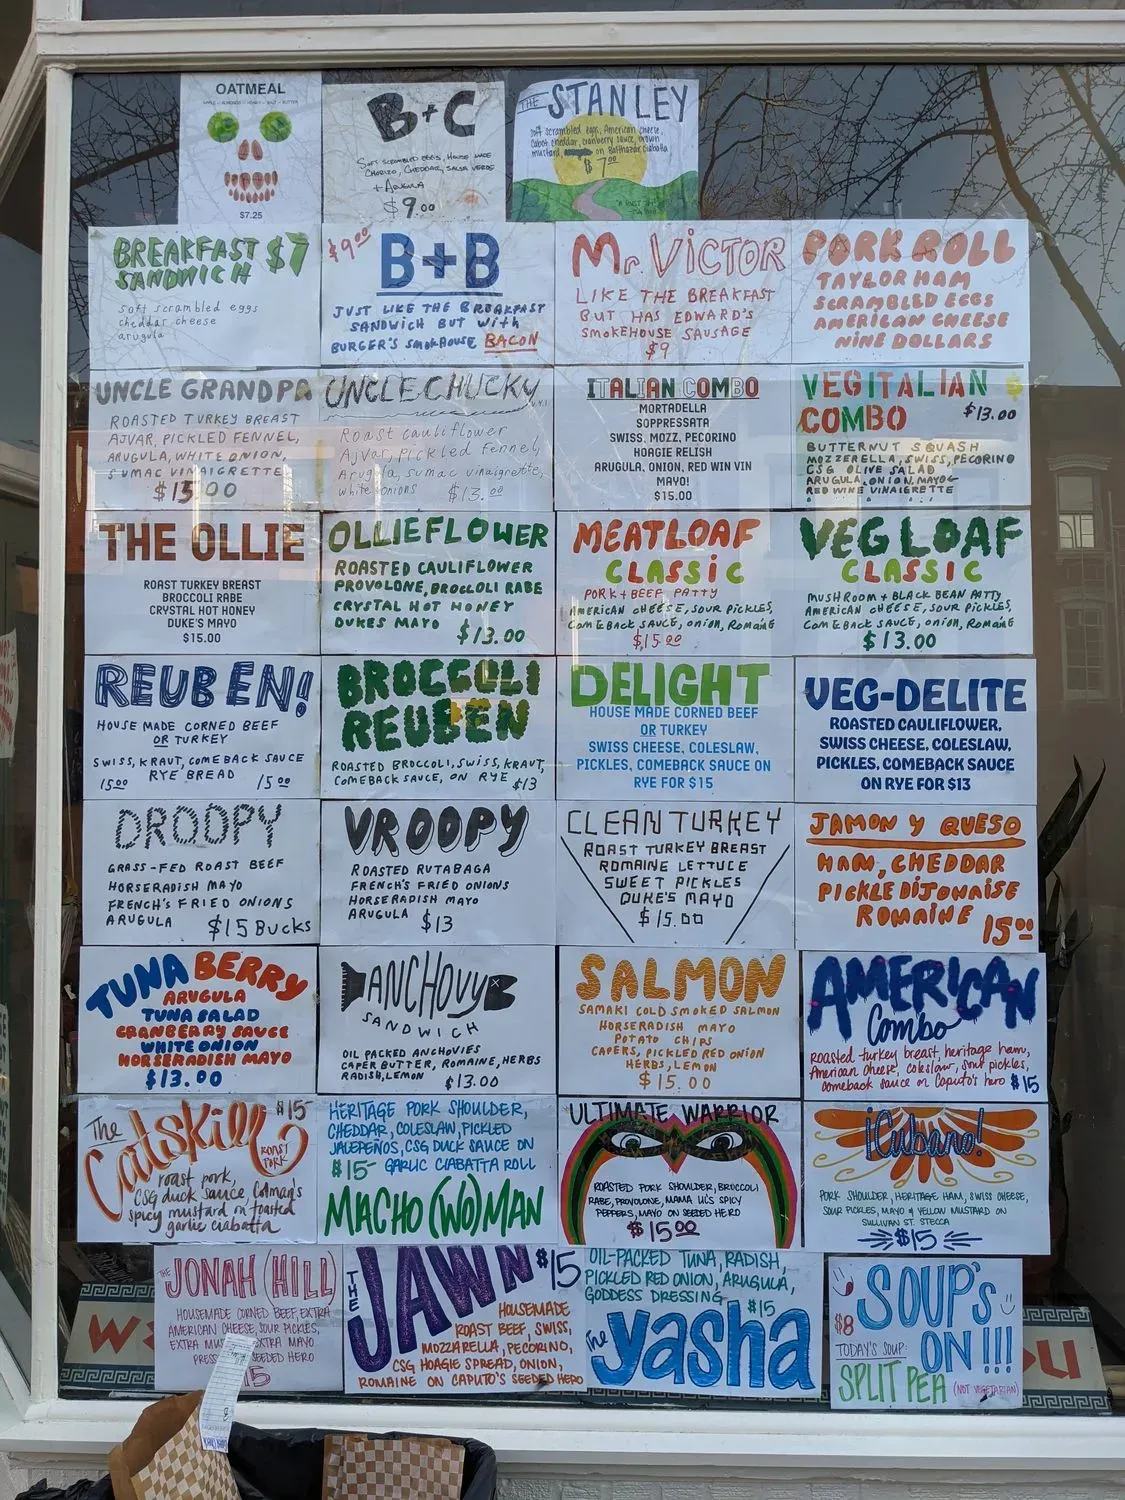 OATMEAL
$7.25
B+C
SOFT SCRAMBLED EGGS, HOUSE MADE
CHORIZO, CHEDDAR, SALSA VERDE
+ ARUGULA
$9.00
THE STANLEY
soft scrambled eggs, American cheese,
Cabot cheddar, cranberry sauce, brown
mustard on Balthazar ciabatta
$7.00
BREAKFAST $7
SANDWICH
soft scrambled eggs
cheddar cheese
arugula
$9.00
B+B
JUST LIKE THE BREAKFAST
SANDWICH BUT WITH
BURGER'S SMOKHOUSE BACON
Mr. VICTOR
LIKE THE BREAKFAST
BUT HAS EDWARD'S
SMOKEHOUSE SAUSAGE
$9
PORK ROLL
TAYLOR HAM
SCRAMBLED EGGS
AMERICAN CHEESE
NINE DOLLARS
UNCLE GRANDPA
ROASTED TURKEY BREAST
AJVAR, PICKLED FENNEL,
ARUGULA, WHITE ONION,
SUMAC VINAIGRETTE
$15.00
UNCLE CHUCKY
Roast cauliflower
Ajvar, pickled fennel,
Arugula, sumac vinaigrette,
white onions $13.00
ITALIAN COMBO
MORTADELLA
SOPPRESSATA
SWISS, MOZZ, PECORINO
HOAGIE RELISH
ARUGULA, ONION, RED WIN VIN
MAYO!
$15.00
VEGITALIAN
COMBO $13.00
BUTTERNUT SQUASH
MOZZERELLA, SWISS, PECORINO
CSG OLIVE SALAD
ARUGULA, ONION, MAYO
RED WINE VINAIGRETTE
THE OLLIE
ROAST TURKEY BREAST
BROCCOLI RABE
CRYSTAL HOT HONEY
DUKE'S MAYO
$15.00
OLLIEFLOWER
ROASTED CAULIFLOWER
PROVOLONE, BROCCOLI RABE
CRYSTAL HOT HONEY
DUKES MAYO $13.00
MEATLOAF
CLASSIC
PORK + BEEF PATTY
AMERICAN CHEESE, SOUR PICKLES,
COMEBACK SAUCE, ONION, ROMAINE
$15.00
VEG LOAF
CLASSIC
MUSHROOM + BLACK BEAN PATTY
AMERICAN CHEESE, SOUR PICKLES,
COMEBACK SAUCE, ONION, ROMAINE
$13.00
REUBEN!
HOUSE MADE CORNED BEEF
OR TURKEY
SWISS, KRAUT, COMEBACK SAUCE
15.00 RYE BREAD 15.00
BROCCOLI
REUBEN
ROASTED BROCCOLI, SWISS, KRAUT,
COMEBACK SAUCE, ON RYE $13
DELIGHT
HOUSE MADE CORNED BEEF
OR TURKEY
SWISS CHEESE, COLESLAW,
PICKLES, COMEBACK SAUCE ON
RYE FOR $15
VEG-DELITE
ROASTED CAULIFLOWER,
SWISS CHEESE, COLESLAW,
PICKLES, COMEBACK SAUCE
ON RYE FOR $13
DROOPY
GRASS-FED ROAST BEEF
HORSERADISH MAYO
FRENCH'S FRIED ONIONS
ARUGULA $15 BUCKS
VROOPY
ROASTED RUTABAGA
FRENCH'S FRIED ONIONS
HORSERADISH MAYO
ARUGULA $13
CLEAN TURKEY
ROAST TURKEY BREAST
ROMAINE LETTUCE
SWEET PICKLES
DUKE'S MAYO
$15.00
JAMON Y QUESO
HAM, CHEDDAR
PICKLE DIJONAISE
ROMAINE 15.00
TUNA BERRY
ARUGULA
TUNA SALAD
CRANBERRY SAUCE
WHITE ONION
HORSERADISH MAYO
$13.00
ANCHOVY
SANDWICH
OIL PACKED ANCHOVIES
CAPER BUTTER, ROMAINE, HERBS
RADISH, LEMON $13.00
SALMON
SAMAKI COLD SMOKED SALMON
HORSERADISH MAYO
POTATO CHIPS
CAPERS, PICKLED RED ONION
HERBS, LEMON
$15.00
AMERICAN
Combo
Roasted turkey breast, heritage ham,
American cheese, coleslaw, sour pickles,
comeback sauce on Caputo's hero $15
The Catskill $15-
ROAST PORK
roast pork,
CSG duck sauce, Colman's
spicy mustard on toasted
garlic ciabatta
HERITAGE PORK SHOULDER,
CHEDDAR, COLESLAW, PICKLED
JALEPEÑOS, CSG DUCK SAUCE ON
$15- GARLIC CIABATTA ROLL
MACHO (WO)MAN
ULTIMATE WARRIOR
ROASTED PORK SHOULDER, BROCCOLI
RABE, PROVOLONE, MAMA LIL'S SPICY
PEPPERS, MAYO ON SEEDED HERO
$15.00
¡Cubano!
PORK SHOULDER, HERITAGE HAM, SWISS CHEESE,
SOUR PICKLES, MAYO & YELLOW MUSTARD ON
SULLIVAN ST. STECCA
$15
THE JONAH (HILL)
HOUSEMADE CORNED BEEF, EXTRA
AMERICAN CHEESE, SOUR PICKLES,
EXTRA EXTRA MAYO
SEEDED HERO
15
THE JAWN $15
HOUSEMADE
ROAST BEEF, SWISS,
MOZZARELLA, PECORINO,
CSG HOAGIE SPREAD, ONION,
ROMAINE ON CAPUTO'S SEEDED HERO
OIL-PACKED TUNA, RADISH,
PICKLED RED ONION, ARUGULA,
GODDESS DRESSING $15
The yasha
SOUP'S
$8 ON!!!
TODAY'S SOUP:
SPLIT PEA (NOT VEGETARIAN)